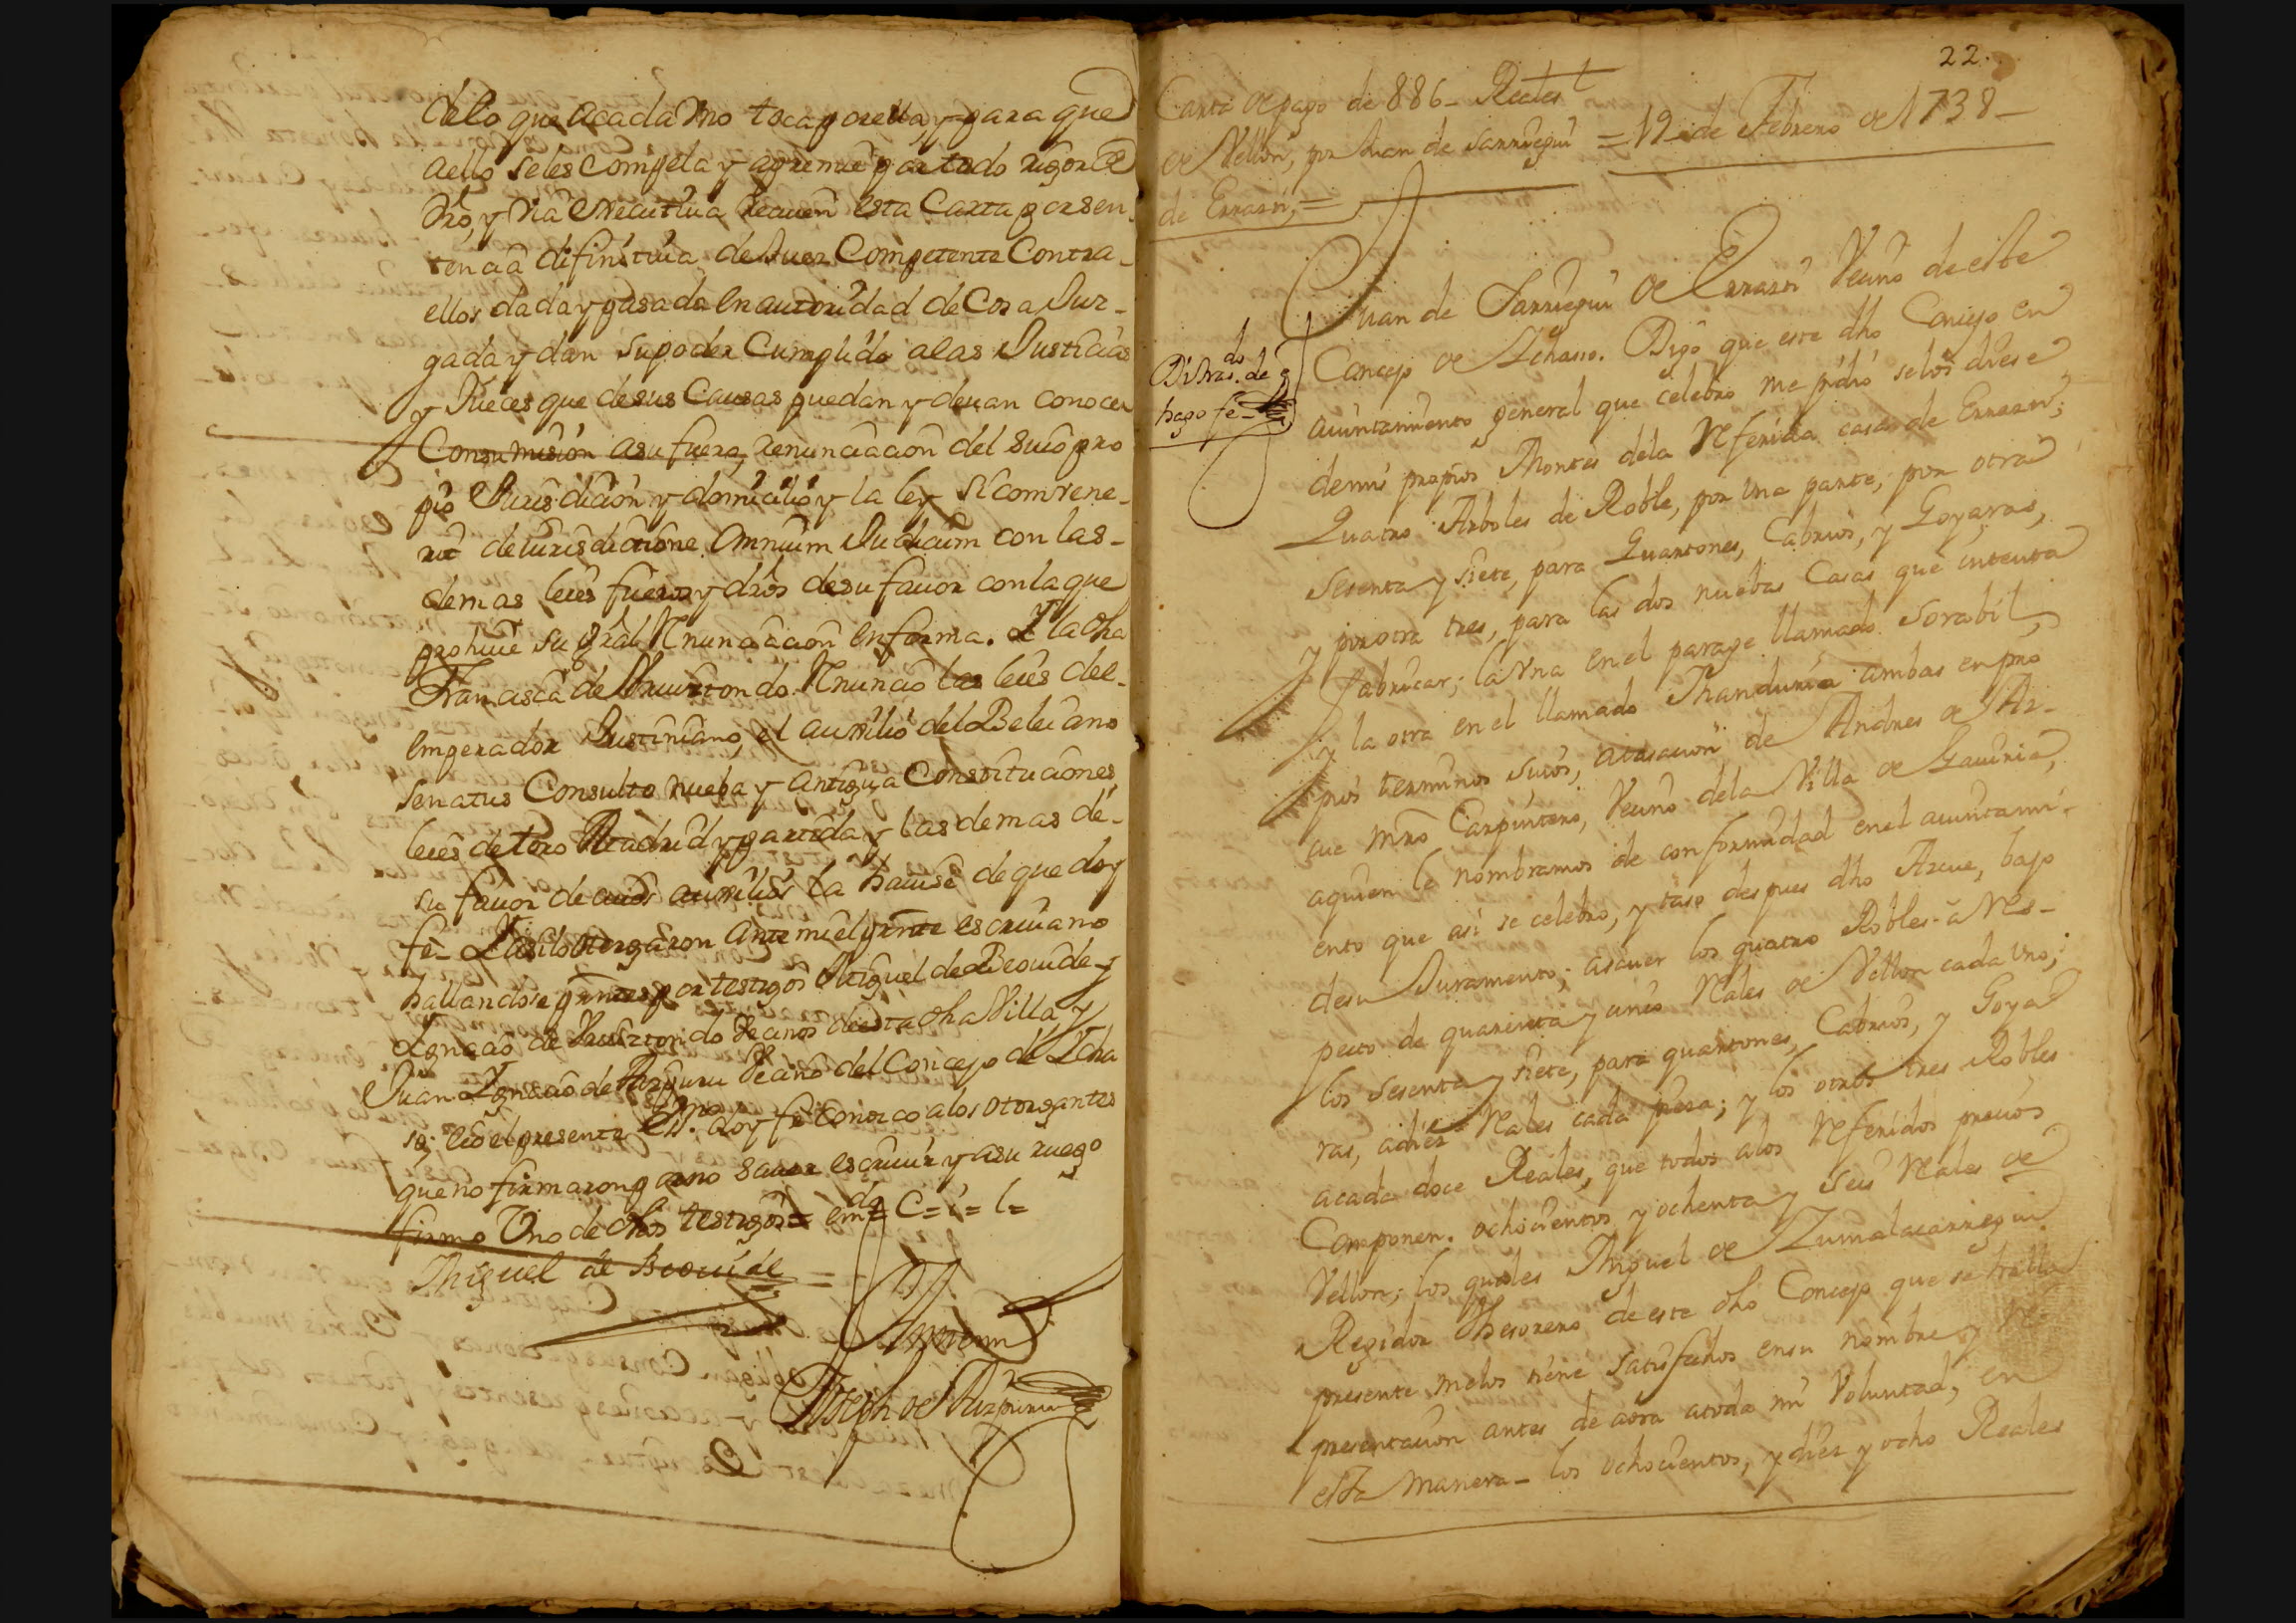 delo que acada Vno toca por ella, y para que
aello seles Compela y apremie por todo rigor de
dro, y Via executiua reciuen esta Carta por sen-
tencia difinitiua de Juez Competente Contra-
ellos dada y pasada en autoridad de Cosa Juz-
gada y dan su poder Cumplido alas Justicias
y Jueces que de sus Causas puedan y deuan conocer
Consumision asu fuero, renunciacion del suio pro
pio Jurisdicion y domicilio y la ley Si comvene-
rit de iurisdictione Omnium Judicum con las-
demas leies fueros y dros de su fauor con la que
prohiue su gral Renunciacion en forma. Y la dha
Francisca de Renuncio las leies del-
Emperador Justiniano, el auxilio del Beleiano
Senatus Consulto nueba y antigua Constituciones
leies de toro Madrid y partida y las demas de-
su fauor de cuios auxilios la hauise de que doy
fe- Y asi lo otorgaron ante mi el prnte escriuano
hallandose prntes por testigos Miguel de Beouide y
Ignacio de Vecinos de esta dha Villa y
Juan Ignacio de Aizpuru Vecino del Concejo de Icha
so; e io el presente Essno. doy fe conozco a los otorgantes
que no firmaron por no sauer escriuir y asu ruego
firmo Vno de dhos testigos = emdo = C = i = l =
Miguel de Beouide =
Ante mi
Joseph de Aizpuru
22.
Carta de pago de 886- Reales
de Vellon, por Juan de Sarriegui = 19 de Febrero de 1738-
de Errazti, =
Juan de Sarriegui de Errazti Vecino de este
Concejo de Ichasso. Digo que este dho Concejo en
do
hago fe-
aiuntamiento general que celebro me pidio selos diese
demis propios Montes dela Referida casa de Errazti;
Quatro Arboles de Roble, por Vna parte, por otra
Sesenta y siete, para Quartones, Cabrios, y Goyaras,
y por otra tres, para las dos nuebas Casas que intenta
fabricar; la Vna en el parage llamado Sorabil,
y la otra en el llamado Mandiuria ambas en pro
pios terminos suios, atasacion de Andres de Az-
cue Mro Carpintero, Vecino dela Villa de Gauiria,
aquien le nombramos de conformidad en el aiuntami-
ento que asi se celebro, y taso despues dho Azcue, bajo
desu Juramento; asauer los quatro Robles a Res-
pecto de quarenta y cinco Reales de Vellon cada Vno;
los Sesenta y siete, para quartones, Cabrios, y Goya
ras, adiez Reales cada pieza; y los otros tres Robles
acada doce Reales, que todos alos Referidos precios
Componen. ochocientos y ochenta y seis Reales de
Vellon; los quales Miguel de Zumalacarregui
Regidor Thesorero de este dho Concejo que se halla
presente melos tiene satisfechos ensu nombre y Re-
presentacion antes de aora atoda mi Voluntad, en
esta manera- los ochocientos, y diez y ocho Reales